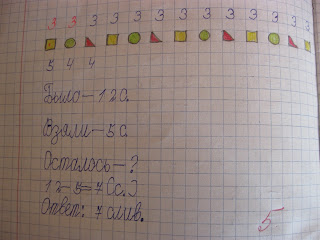 3 3 3 3 3 3 3 3 3 3 3 3 3 3
5 4 4
Было – 12 с.
Взяли – 5 с.
Осталось – ?
12 – 5 = 7 (с.)
Ответ: 7 слив.
5